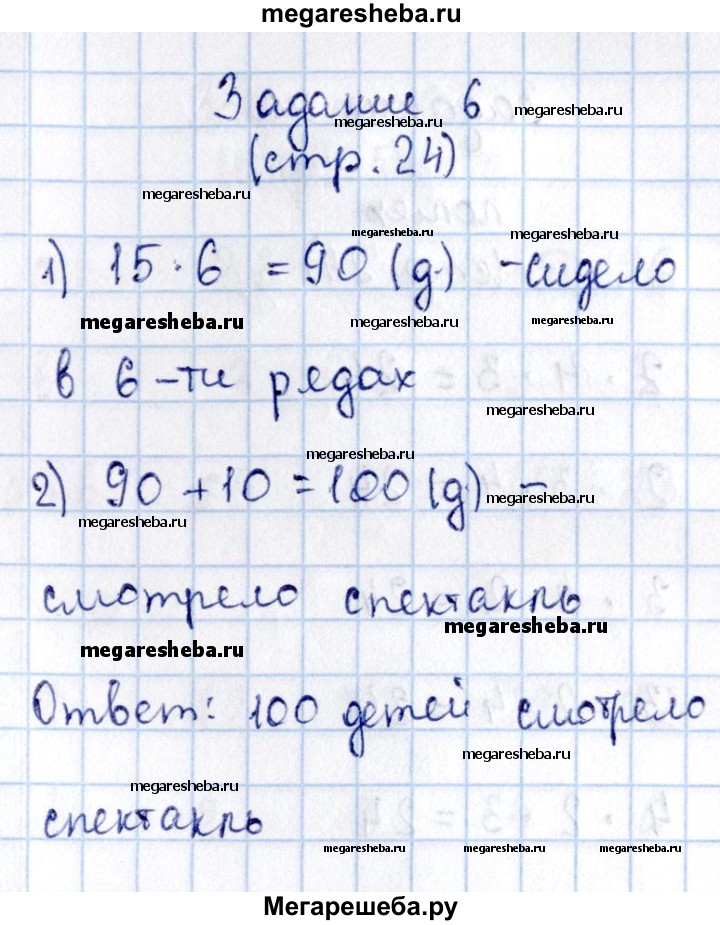 megaresheba.ru
Задание 6 megaresheba.ru
megaresheba.ru
(стр. 24)
megaresheba.ru
megaresheba.ru
1) 15 · 6 = 90 (д.) - сидело
megaresheba.ru megaresheba.ru megaresheba.ru
в 6-ти рядах
megaresheba.ru
megaresheba.ru
2) 90 + 10 = 100 (д) -
megaresheba.ru
megaresheba.ru
смотрело спектакль
megaresheba.ru
megaresheba.ru
Ответ: 100 детей смотрело
megaresheba.ru
megaresheba.ru
спектакль
megaresheba.ru megaresheba.ru megaresheba.ru
Мегарешеба.ру